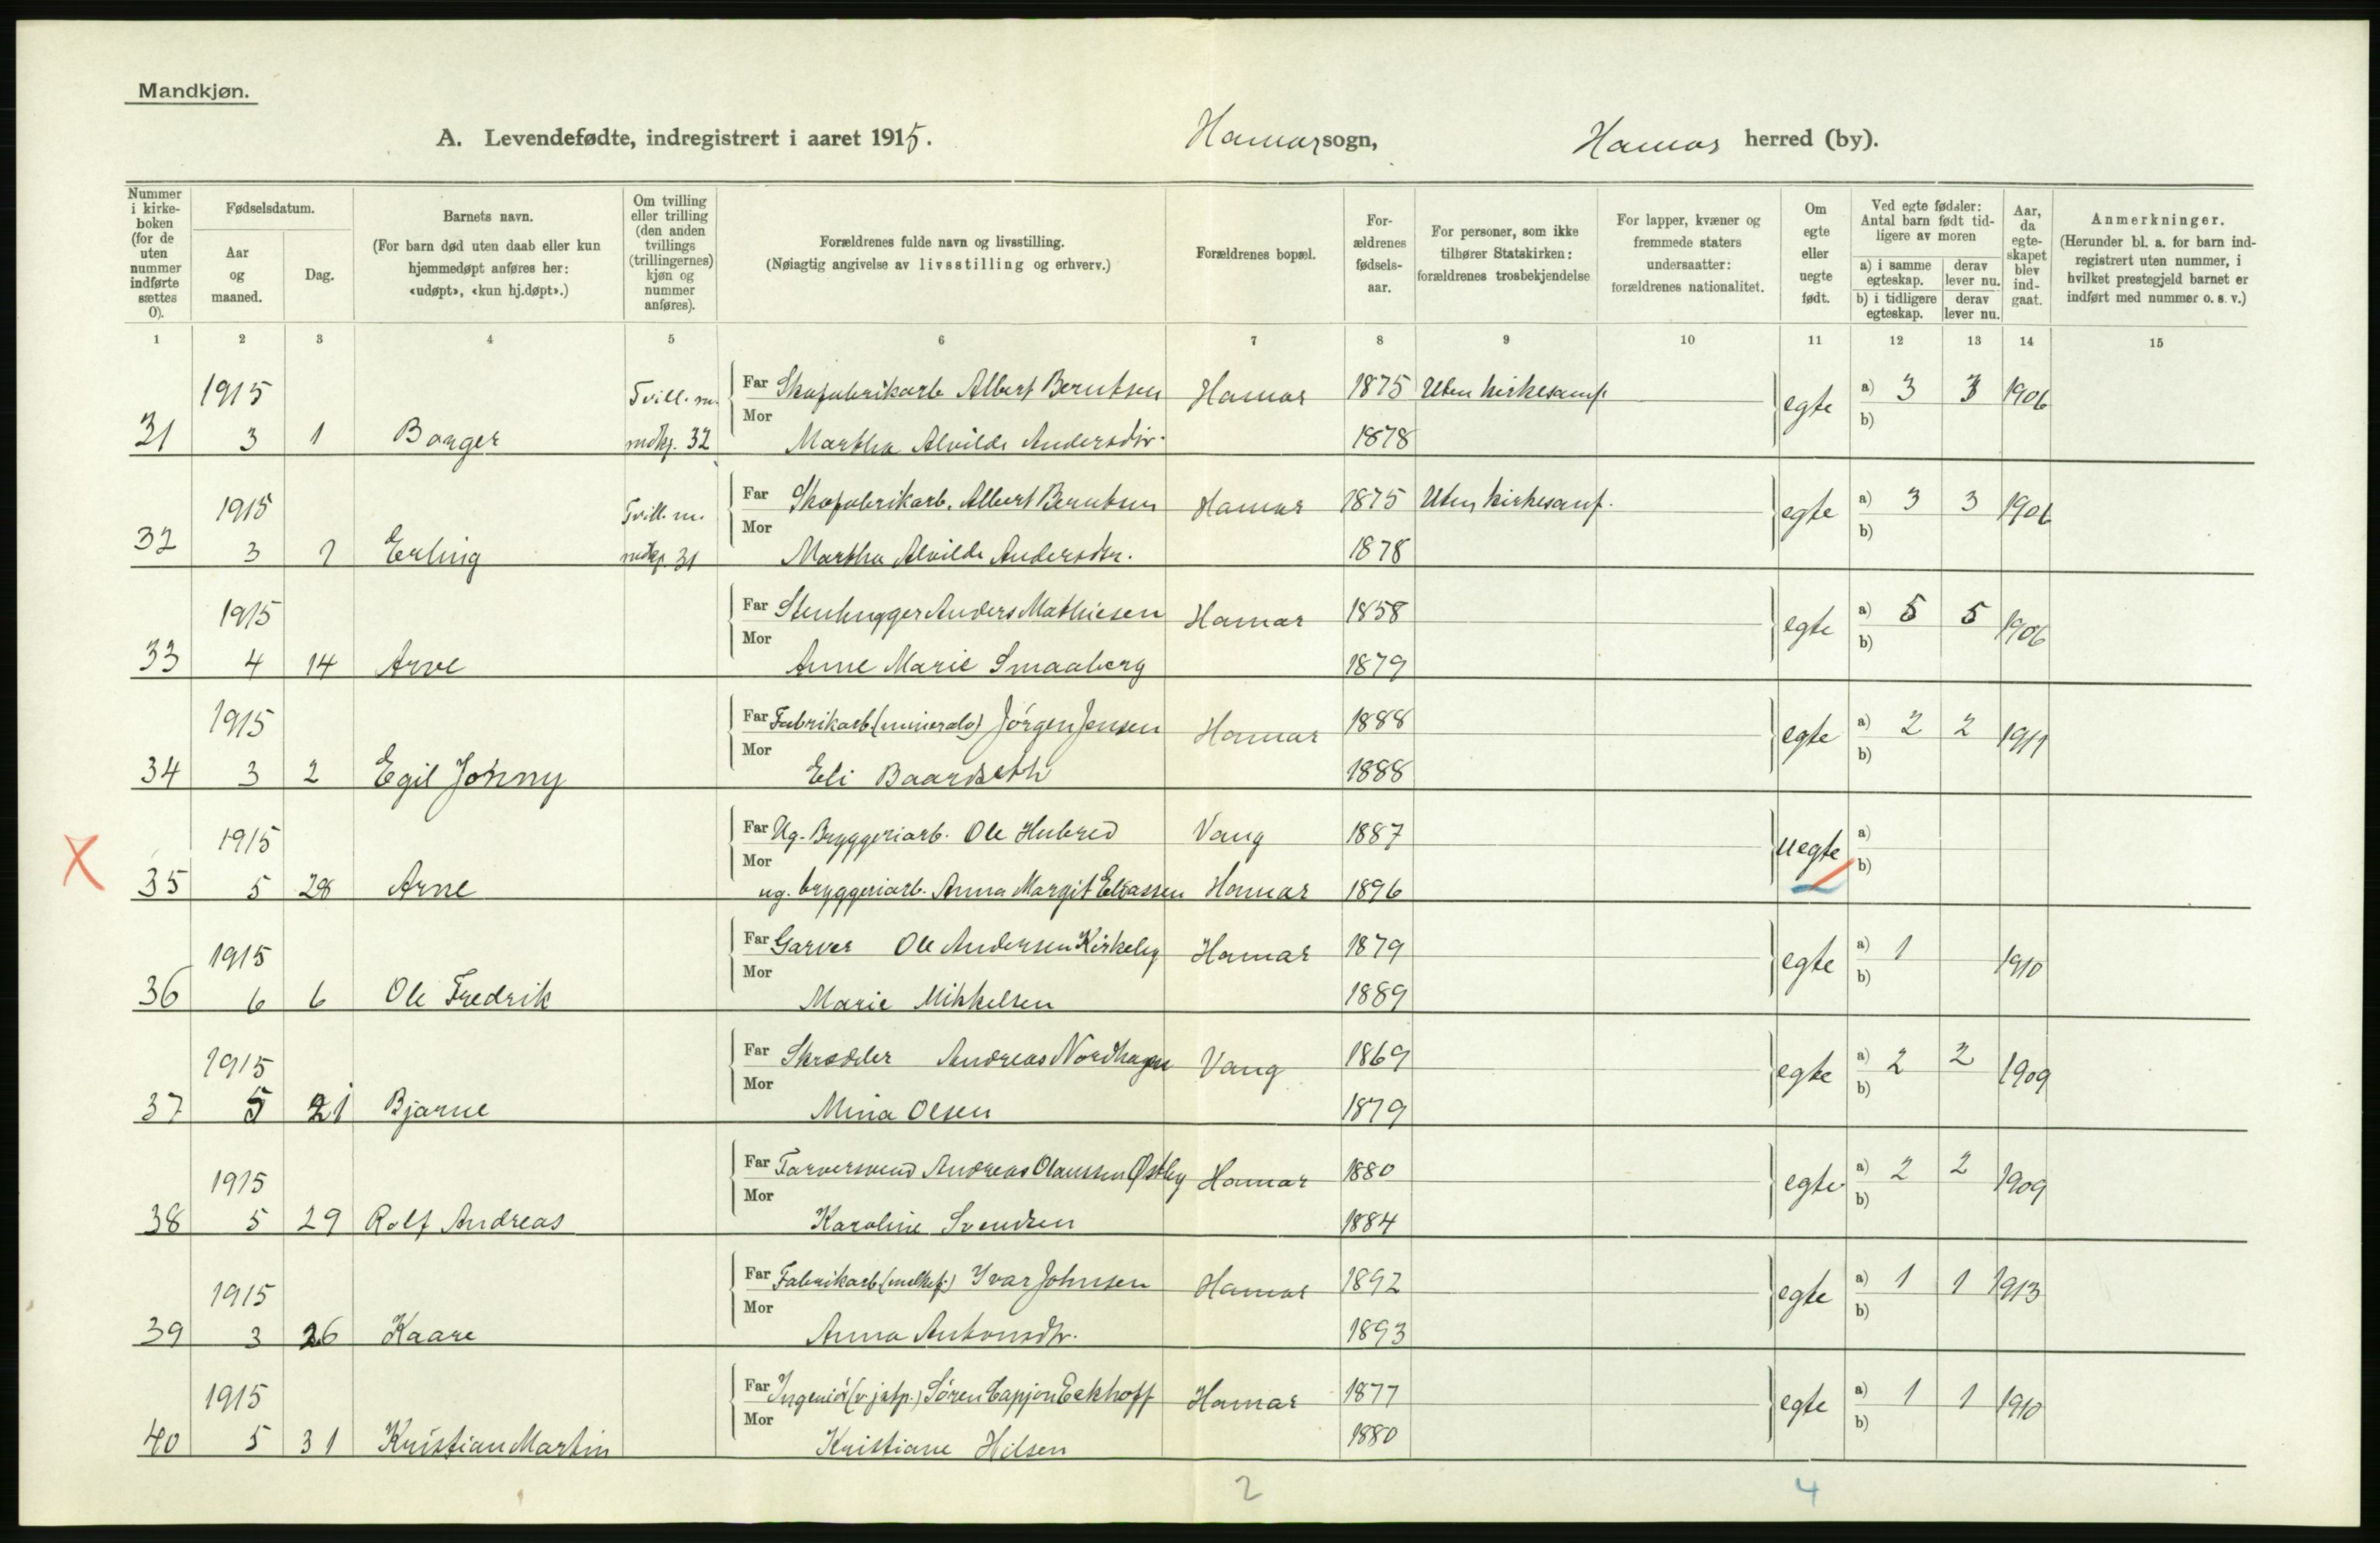 Mandkjøn.
A. Levendefødte, indregistrert i aaret 1915. Hamar sogn, Hamar herred (by).
Nummer i kirke-boken (for de uten nummer indførte sættes 0).
Fødselsdatum.
Aar og maaned.
Dag.
Barnets navn.
(For barn død uten daab eller kun hjemmedøpt anføres her: «udøpt», «kun hj.døpt».)
Om tvilling eller trilling (den anden tvillings (trillingernes) kjøn og nummer anføres).
Forældrenes fulde navn og livsstilling.
(Nøiagtig angivelse av livsstilling og erhverv.)
Forældrenes bopæl.
For-ældrenes fødsels-aar.
For personer, som ikke tilhører Statskirken: forældrenes trosbekjendelse
For lapper, kvæner og fremmede staters undersaatter: forældrenes nationalitet.
Om egte eller uegte født.
Ved egte fødsler: Antal barn født tid-ligere av moren
a) i samme egteskap.
derav lever nu.
b) i tidligere egteskap.
derav lever nu.
Aar, da egte-skapet blev ind-gaat.
Anmerkninger.
(Herunder bl. a. for barn ind-registrert uten nummer, i hvilket prestegjeld barnet er indført med nummer o. s. v.)
1 2 3 4 5 6 7 8 9 10 11 12 13 14 15
1915 Tvill. m. Far Skofabrikarb. Albert Berntsen Hamar 1875 Uten kirkesamf. egte a) 3 3 1906
31 3 1 Borger mdkj. 32 Mor Martha Alvilde Andersdtr. 1878 b)
1915 Tvill. m. Far Skofabrikarb. Albert Berntsen Hamar 1875 Uten kirkesamf. egte a) 3 3 1906
32 3 1 Erling mdkj. 31 Mor Martha Alvilde Andersdtr. 1878 b)
1915 Far Stenhugger Anders Mathiesen Hamar 1858 egte a) 5 5 1906
33 4 14 Arve Mor Anne Marie Smaaberg 1879 b)
1915 Far Fabrikarb. (mineralv) Jörgen Jensen Hamar 1888 egte a) 2 2 1911
34 3 2 Egil Johnny Mor Eli Baardseth 1888 b)
1915 Far Ug. Bryggeriarb. Ole Hubred Vang 1887 uegte a)
35 5 28 Arne Mor ug. bryggeriarb. Anna Margit Eliassen Hamar 1896 b)
1915 Far Garver Ole Andersen Kirkeby Hamar 1879 egte a) 1 1910
36 6 6 Ole Fredrik Mor Marie Mikkelsen 1889 b)
1915 Far Skrædder Andreas Nordhagen Vang 1869 egte a) 2 2 1909
37 5 21 Bjarne Mor Mina Olsen 1879 b)
1915 Far Farversvend Andreas Olaussen Østby Hamar 1880 egte a) 2 2 1909
38 5 29 Rolf Andreas Mor Karoline Svendsen 1884 b)
1915 Far Fabrikarb. (melkef.) Ivar Johnsen Hamar 1892 egte a) 1 1 1913
39 3 26 Kaare Mor Anna Antonsdtr. 1893 b)
1915 Far Ingeniör (v jstp.) Sören Capjon Eckhoff Hamar 1877 egte a) 1 1 1910
40 5 31 Kristian Martin Mor Kristiane Hilsen 1880 b)
2 4